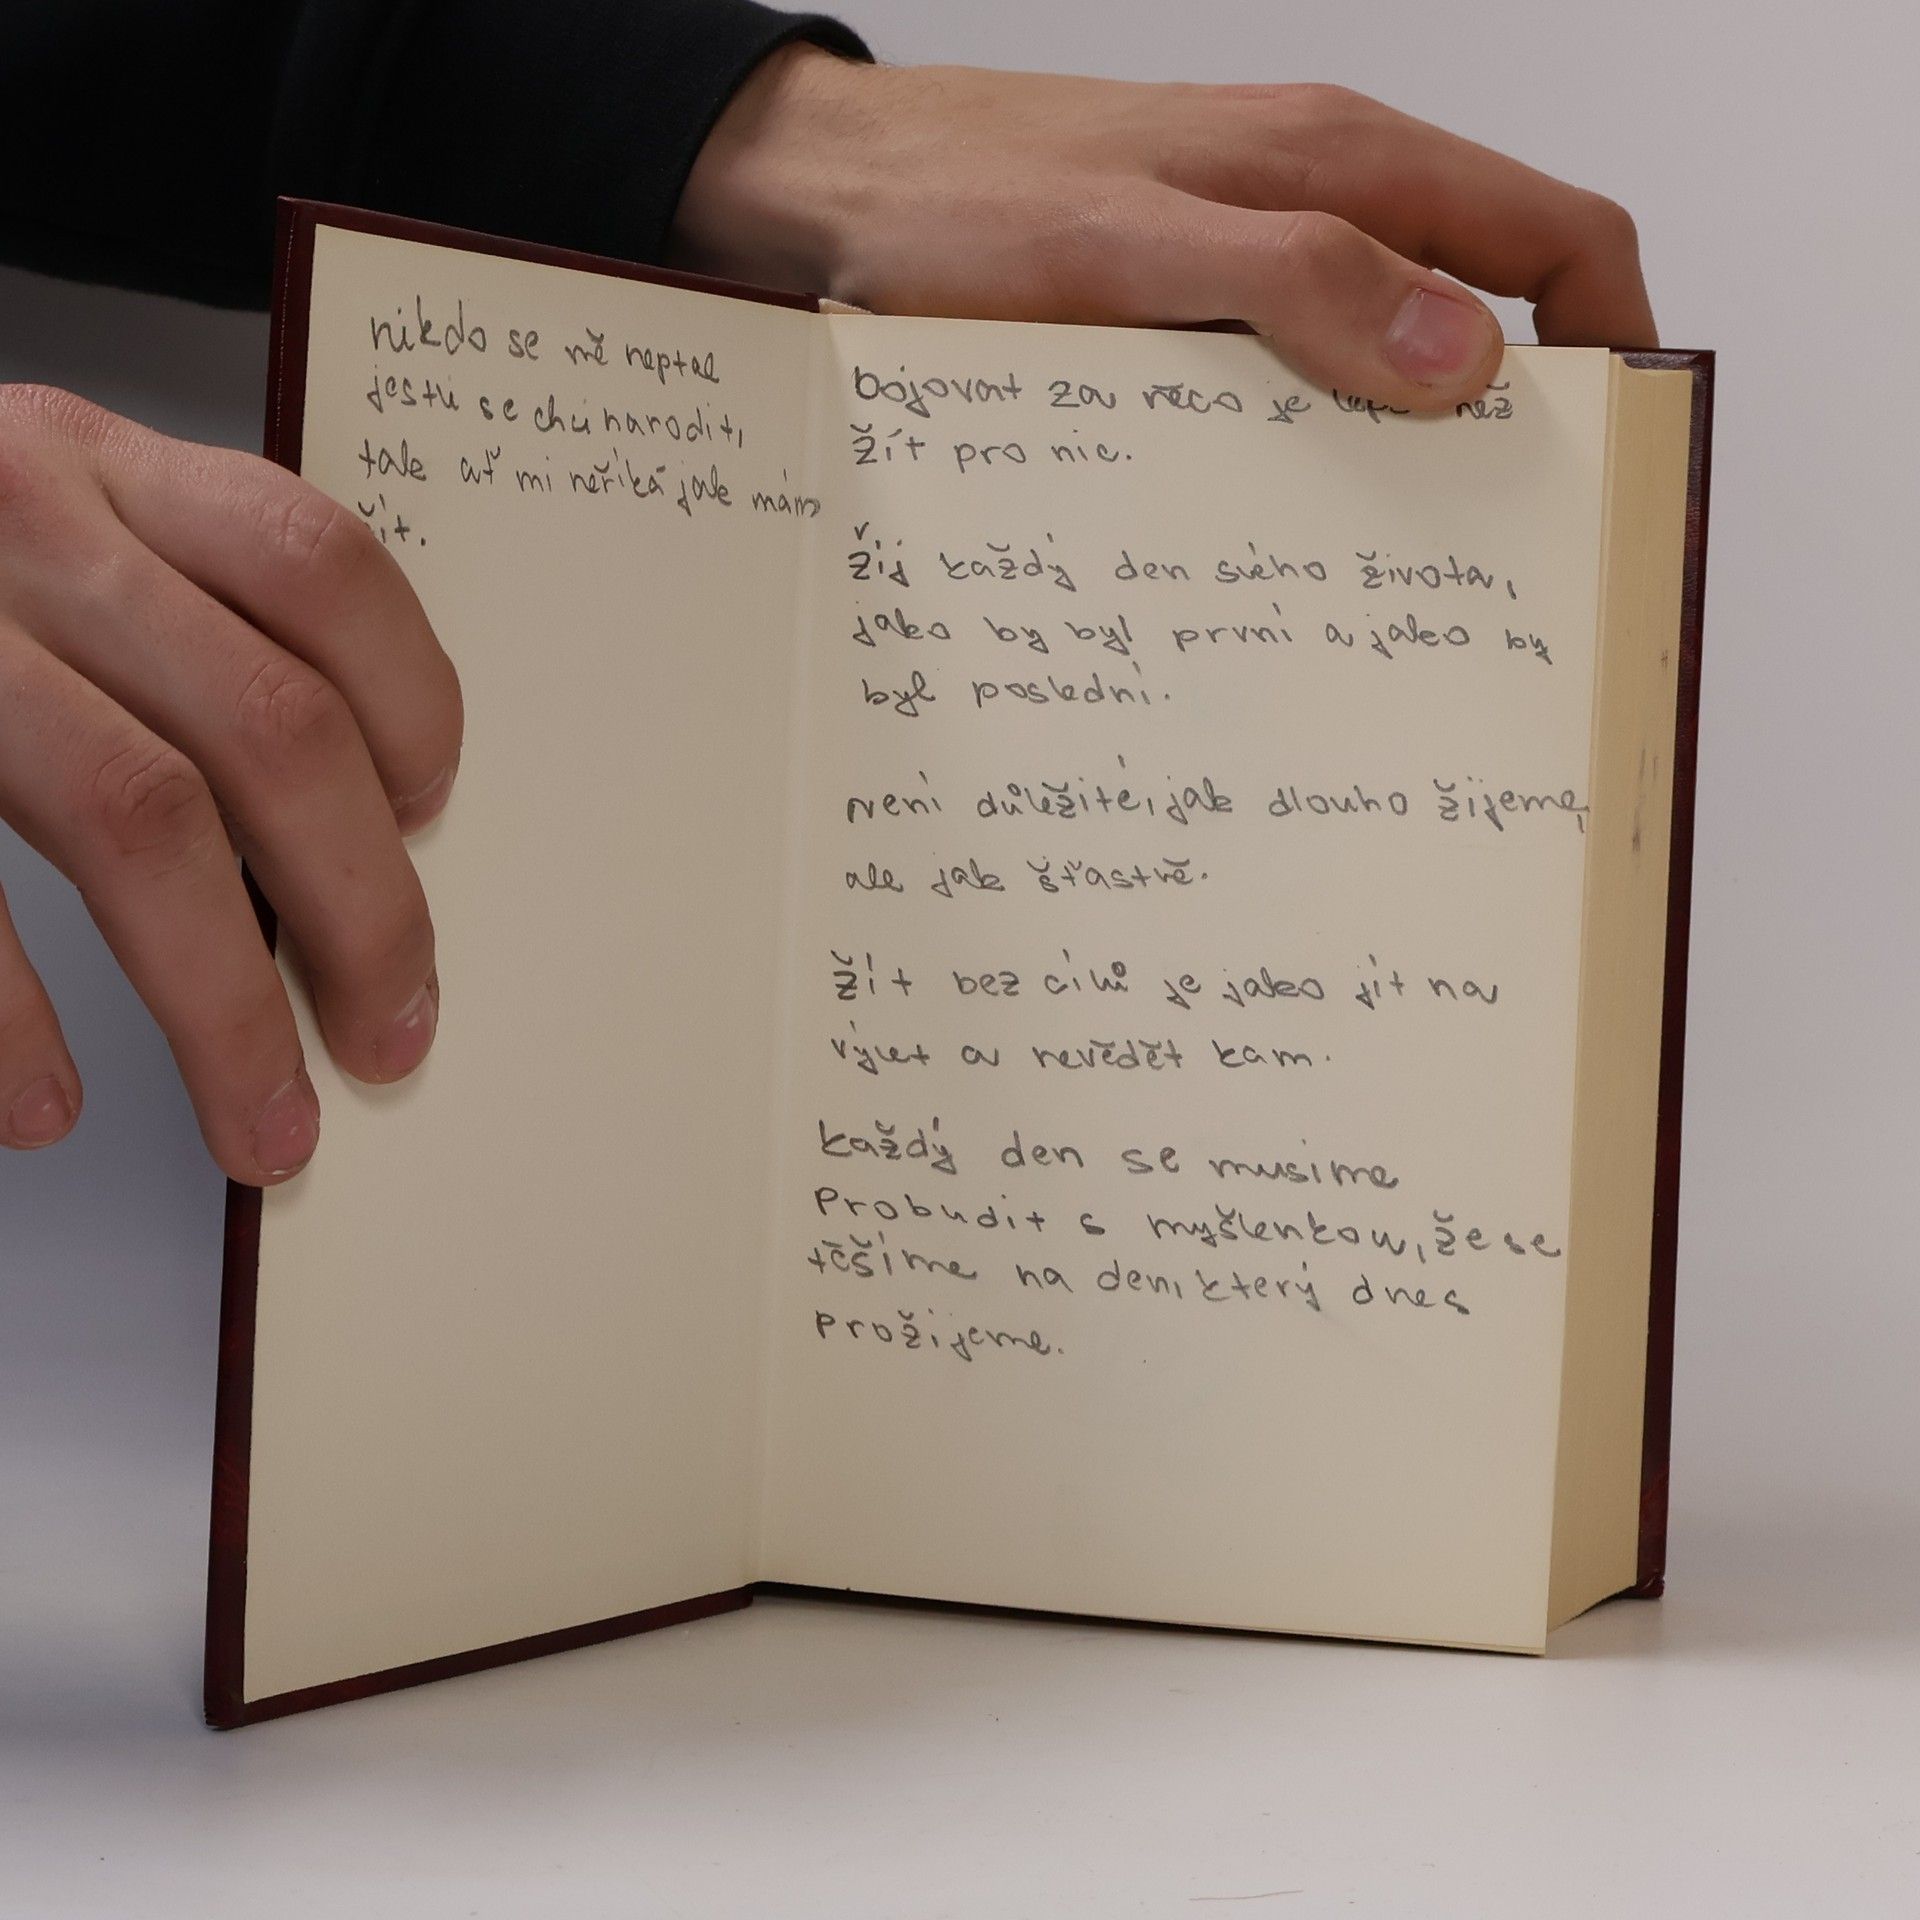 nikdo se mě neptal
jestli se chci narodit,
tak ať mi neříká jak mám
žít.
bojovat za něco je lepší než
žít pro nic.
žij každý den svého života,
jako by byl první a jako by
byl poslední.
není důležité, jak dlouho žijeme,
ale jak šťastně.
žít bez cílů je jako jít na
výlet a nevědět kam.
každý den se musíme
probudit s myšlenkou, že se
těšíme na den, který dnes
prožijeme.